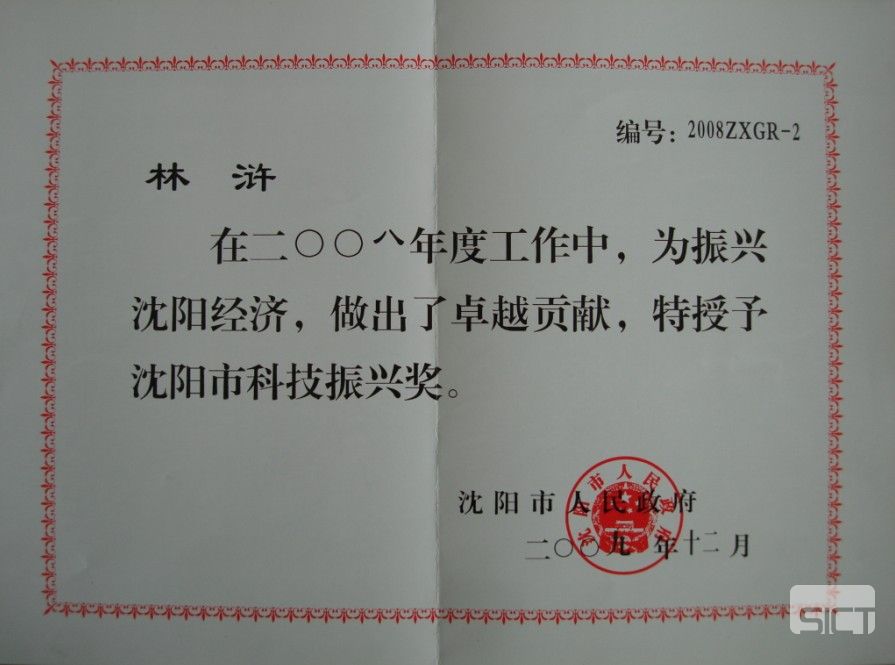 编号：2008ZXGR-2
林 浒
在二〇〇八年度工作中，为振兴
沈阳经济，做出了卓越贡献，特授予
沈阳市科技振兴奖。
沈阳市人民政府
二〇〇九年十二月
沈阳市人民政府
SICT